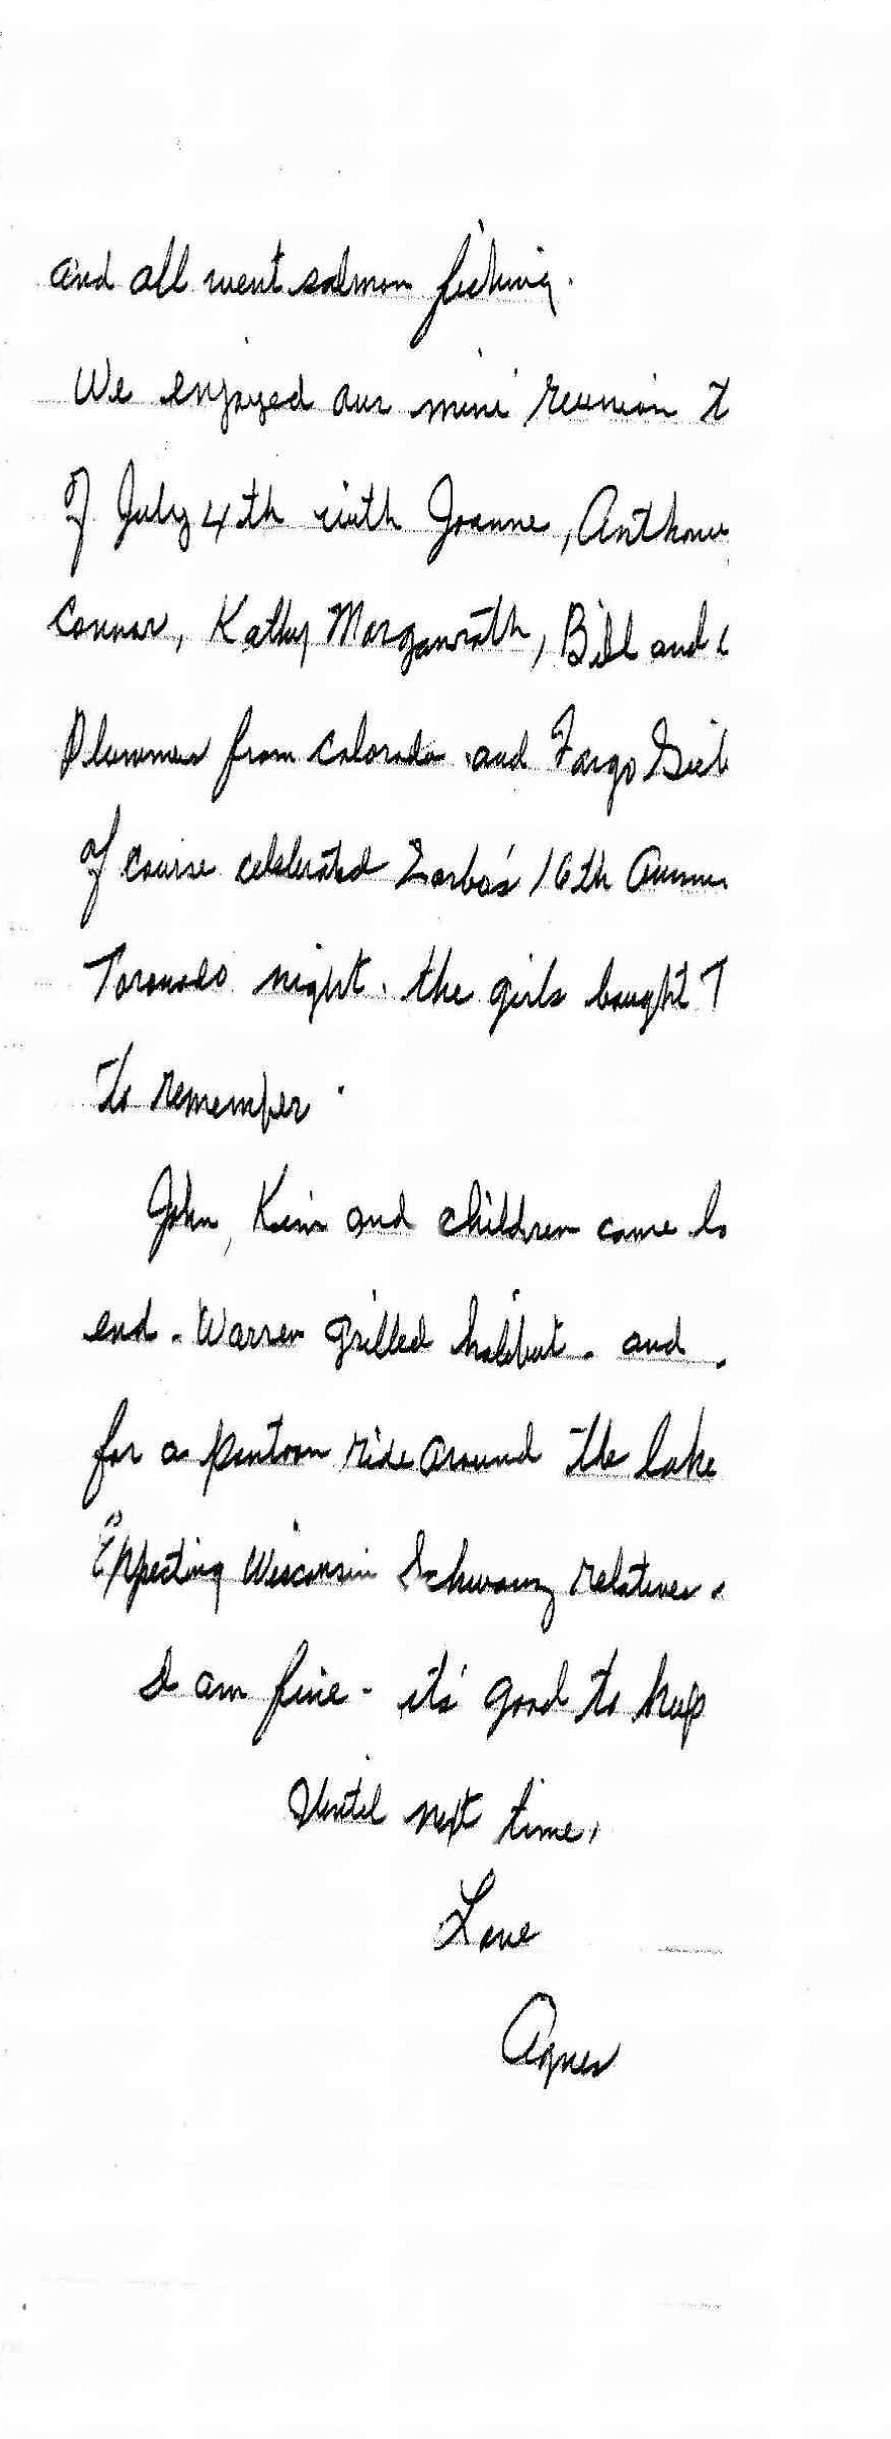 and all went salmon fishing.
We enjoyed our mini reunion t
of July 4th with Joanne, Anthony
Connor, Kathy Morganroth, Bill and
Plummer from Colorado and Fargo
of course celebrated Zorba's 16th
Toronado night. the girls bought T
to remember.
John, Kim and children came lo
end. Warren grilled halibut. and
for a pontoon ride around the lake
Expecting Wisconsin Schwanz relatives.
I am fine - it's good to keep
Until next time,
Love
Agnes